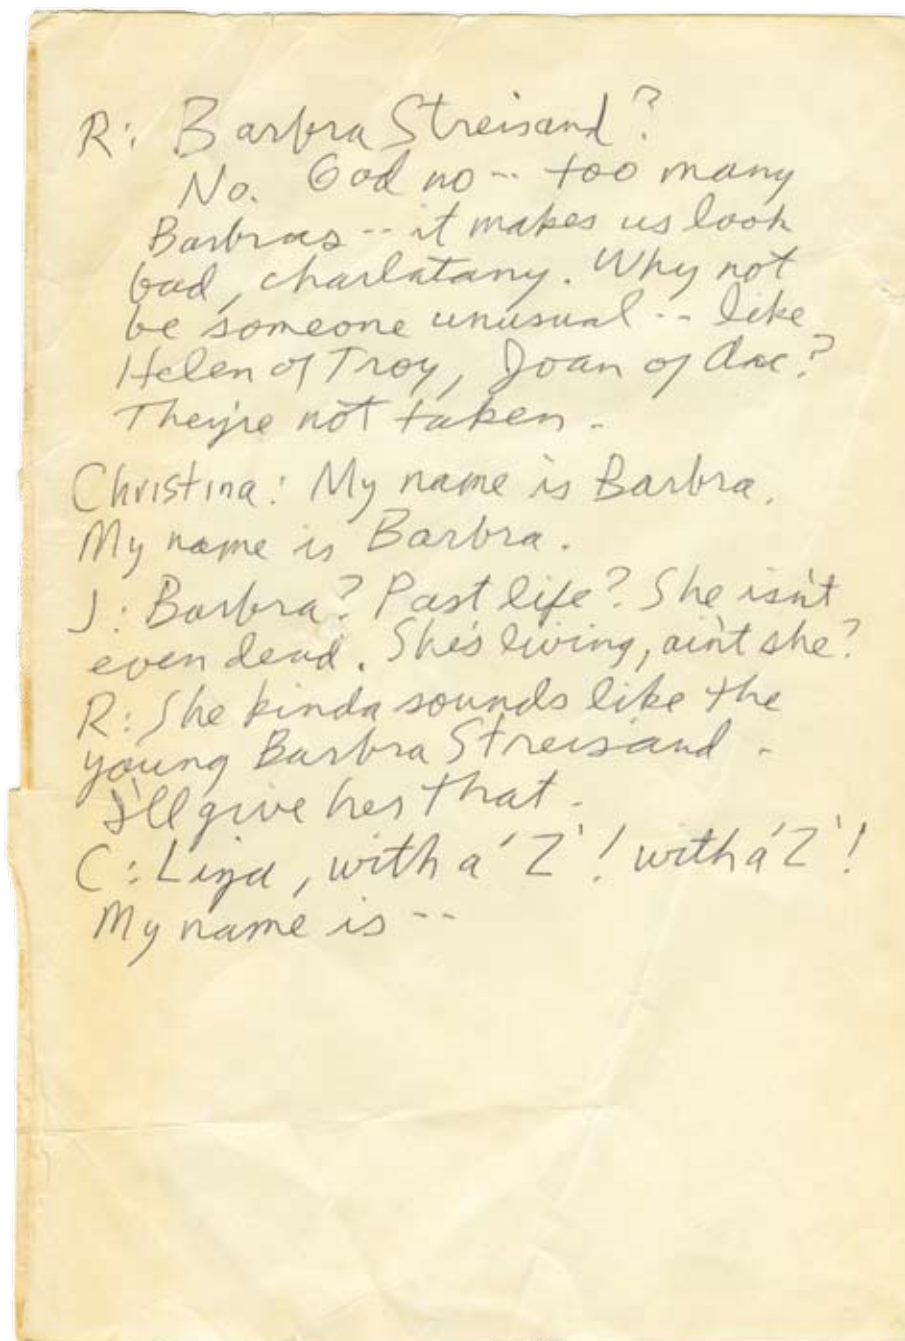 R: Barbra Streisand?
No. God no -- too many
Barbras -- it makes us look
bad, charlatany. Why not
be someone unusual -- like
Helen of Troy, Joan of Arc?
They're not taken.
Christina: My name is Barbra.
My name is Barbra.
J: Barbra? Past life? She isn't
even dead. She's living, ain't she?
R: She kinda sounds like the
young Barbra Streisand.
I'll give her that.
C: Liza, with a 'Z'! with a 'Z'!
My name is --